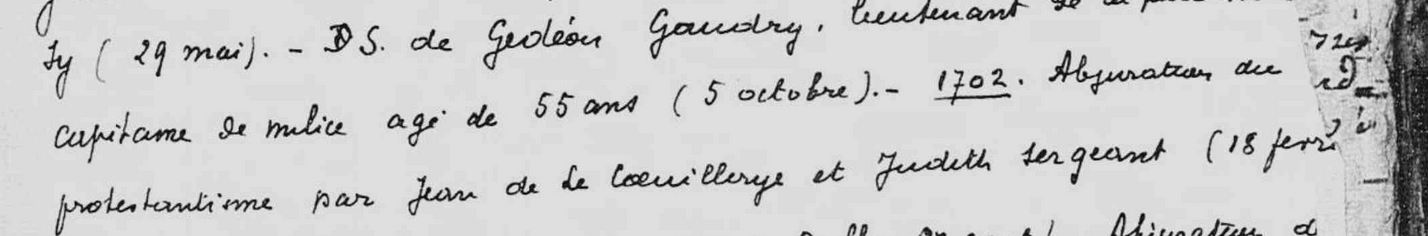 Sy (29 mai). - DS. de Gedéon Gaudry, lieutenant de la
capitaine de milice agé de 55 ans (5 octobre). - 1702. Abjuration du
protestantisme par Jean de Le Coeuillerye et Judith Sergeant (18 fevr
Abjuration d